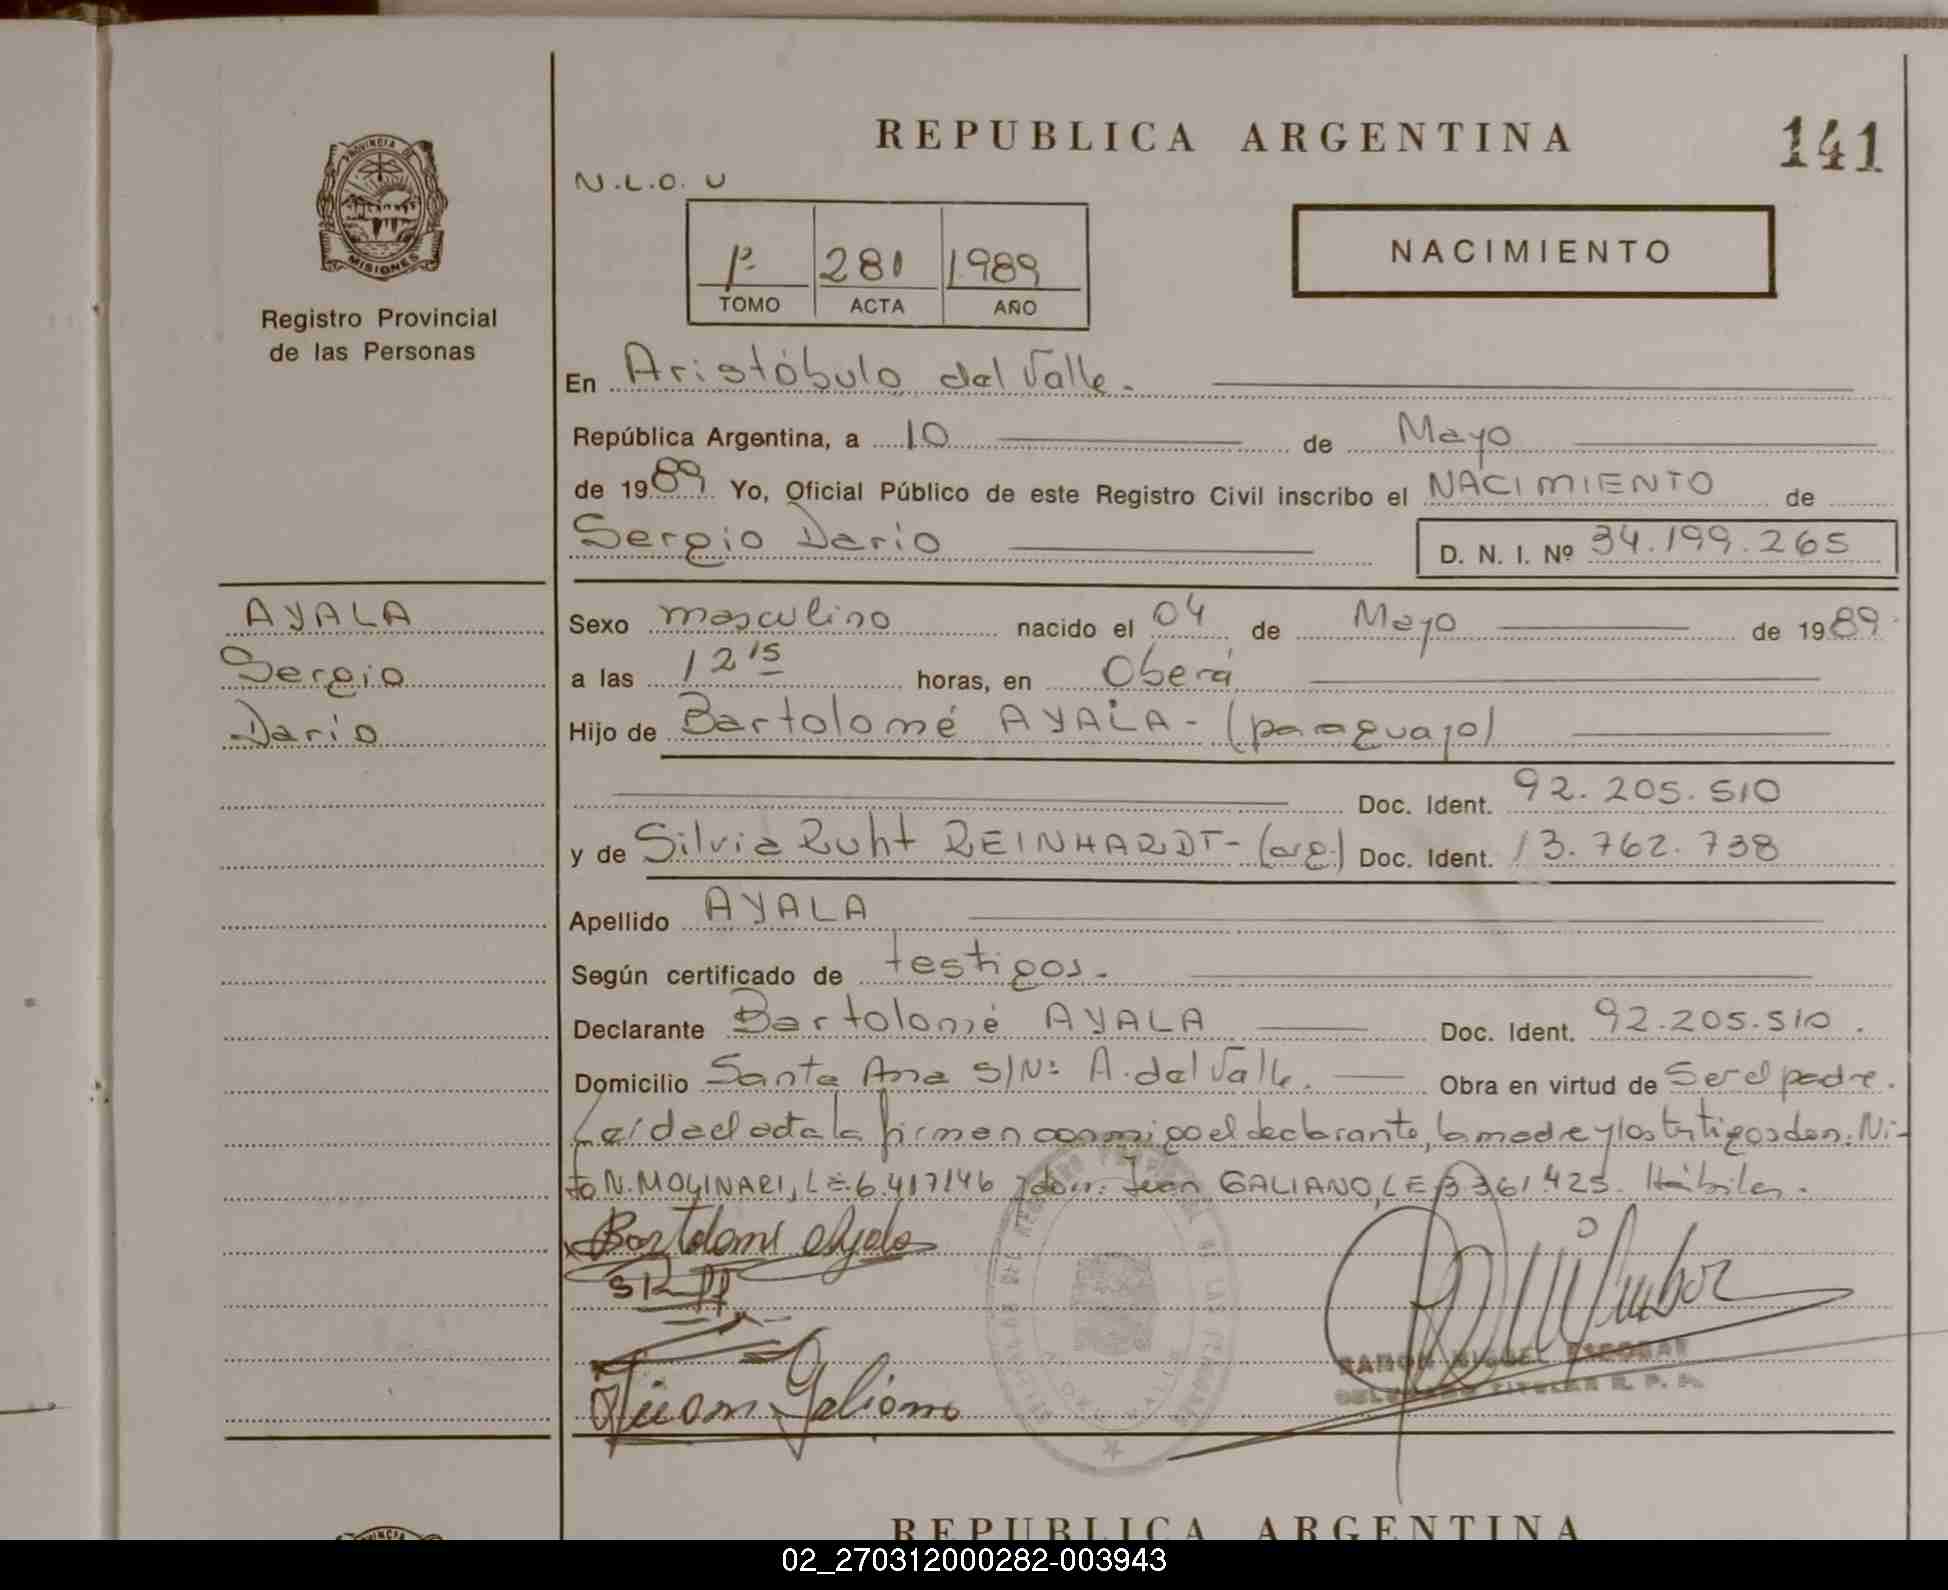 REPUBLICA ARGENTINA
141
N.L.O. U
PROVINCIA DE
MISIONES
Registro Provincial
de las Personas
1º 281 1989
TOMO ACTA AÑO
NACIMIENTO
En Aristóbulo del Valle.
República Argentina, a 10 de Mayo
de 1989 Yo, Oficial Público de este Registro Civil inscribo el NACIMIENTO de
Sergio Darío D. N. I. Nº 34.199.265
AYALA
Sergio
Darío
Sexo masculino nacido el 04 de Mayo de 1989
a las 12 15 horas, en Oberá
Hijo de Bartolomé AYALA - (paraguayo)
Doc. Ident. 92.205.510
y de Silvia Ruht REINHARDT - (arg.) Doc. Ident. 13.762.738
Apellido AYALA
Según certificado de testigos.
Declarante Bartolomé AYALA Doc. Ident. 92.205.510.
Domicilio Santa Ana S/Nº A. del Valle. Obra en virtud de Ser el padre.
Leída el acta la firman conmigo el declarante, la madre y los testigos don: Ni-
to N. MOLINARI, L.E. 6.417146 y don: Juan GALIANO, LE 3361.425. Hábiles.
Bartolome Ayala
SRff
Juan Galiano
RAMON MIGUEL ESCOBAR
DELEGADO TITULAR R. P. P.
REPUBLICA ARGENTINA
02_270312000282-003943